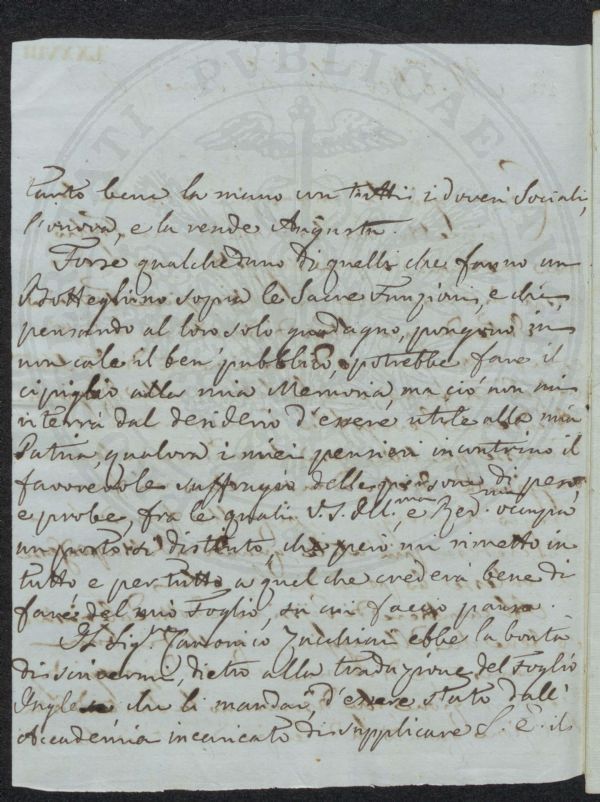 LXXVIII
tanto bene la mano con tutti i doveri Sociali,
l'onora, e la rende Augusta.
Forse qualcheduno di quelli che fanno un
Botteghino sopra le Sacre Funzioni, e che,
pensando al loro solo guadagno, pongono in
non cale il ben pubblico, potrebbe fare il
cipiglio alla mia Memoria, ma ciò non mi
riterrà dal desiderio d'essere utile alla mia
Patria, qualora i miei pensieri incontrino il
favorevole suffragio delle persone di peso,
e probe, fra le quali V.S. Ill.ma e Rev.ma occupa
un posto sì distinto, che però mi rimetto in
tutto e per tutto a quel che crederà bene di
fare del mio Foglio, su cui faccio pausa.
Il Sig.r Canonico Zucchini ebbe la bontà
di, dietro alla traduzione del Foglio
Inglese che li mandai, d'essere stato dall'
Accademia incaricato di supplicare S. E. il